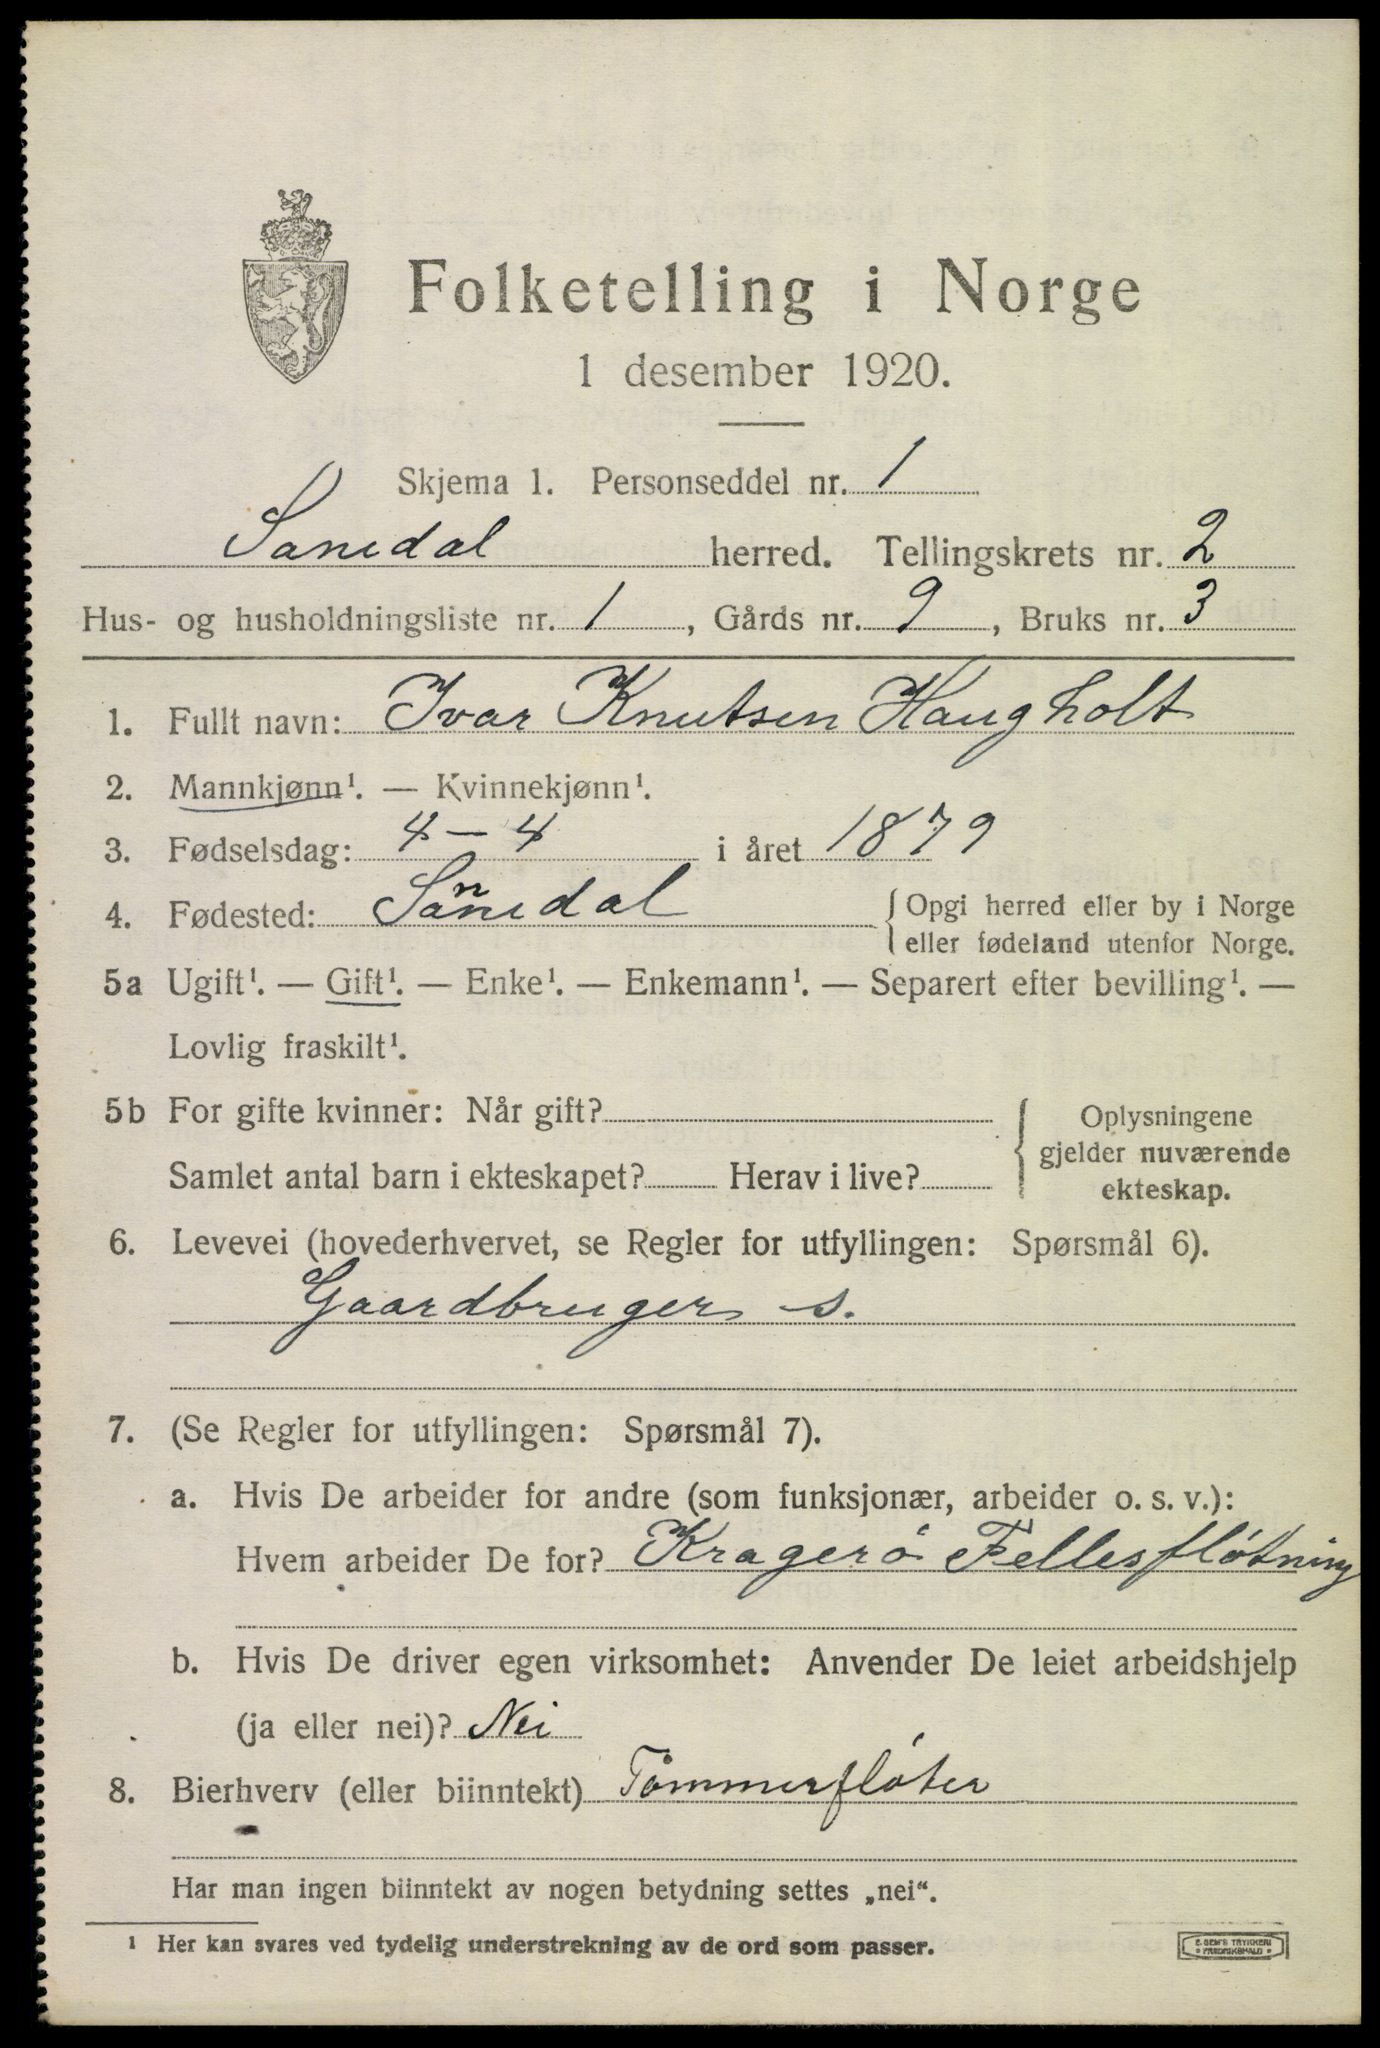 Folketelling i Norge
1 desember 1920.
Skjema 1. Personseddel nr. 1
Sanedal herred. Tellingskrets nr. 2
Hus- og husholdningsliste nr. 1, Gårds nr. 9, Bruks nr. 3
1. Fullt navn: Ivar Knutsen Haugholt
2. Mannkjønn¹. — Kvinnekjønn¹.
3. Fødselsdag: 4-4 i året 1879
4. Fødested: Sannedal { Opgi herred eller by i Norge
eller fødeland utenfor Norge.
5a Ugift¹. — Gift¹. — Enke¹. — Enkemann¹. — Separert efter bevilling¹. —
Lovlig fraskilt¹.
5b For gifte kvinner: Når gift?
Samlet antal barn i ekteskapet? Herav i live?
{ Oplysningene
gjelder nuværende
ekteskap.
6. Levevei (hovederhvervet, se Regler for utfyllingen: Spørsmål 6).
Gaardbruger s.
7. (Se Regler for utfyllingen: Spørsmål 7).
a. Hvis De arbeider for andre (som funksjonær, arbeider o. s. v.):
Hvem arbeider De for? Kragerö Fellesflötning
b. Hvis De driver egen virksomhet: Anvender De leiet arbeidshjelp
(ja eller nei)? Nei
8. Bierhverv (eller biinntekt) Tömmerflöter
Har man ingen biinntekt av nogen betydning settes „nei“.
¹ Her kan svares ved tydelig understrekning av de ord som passer.
E. SEM'S TRYKKERI
FREDRIKSHALD